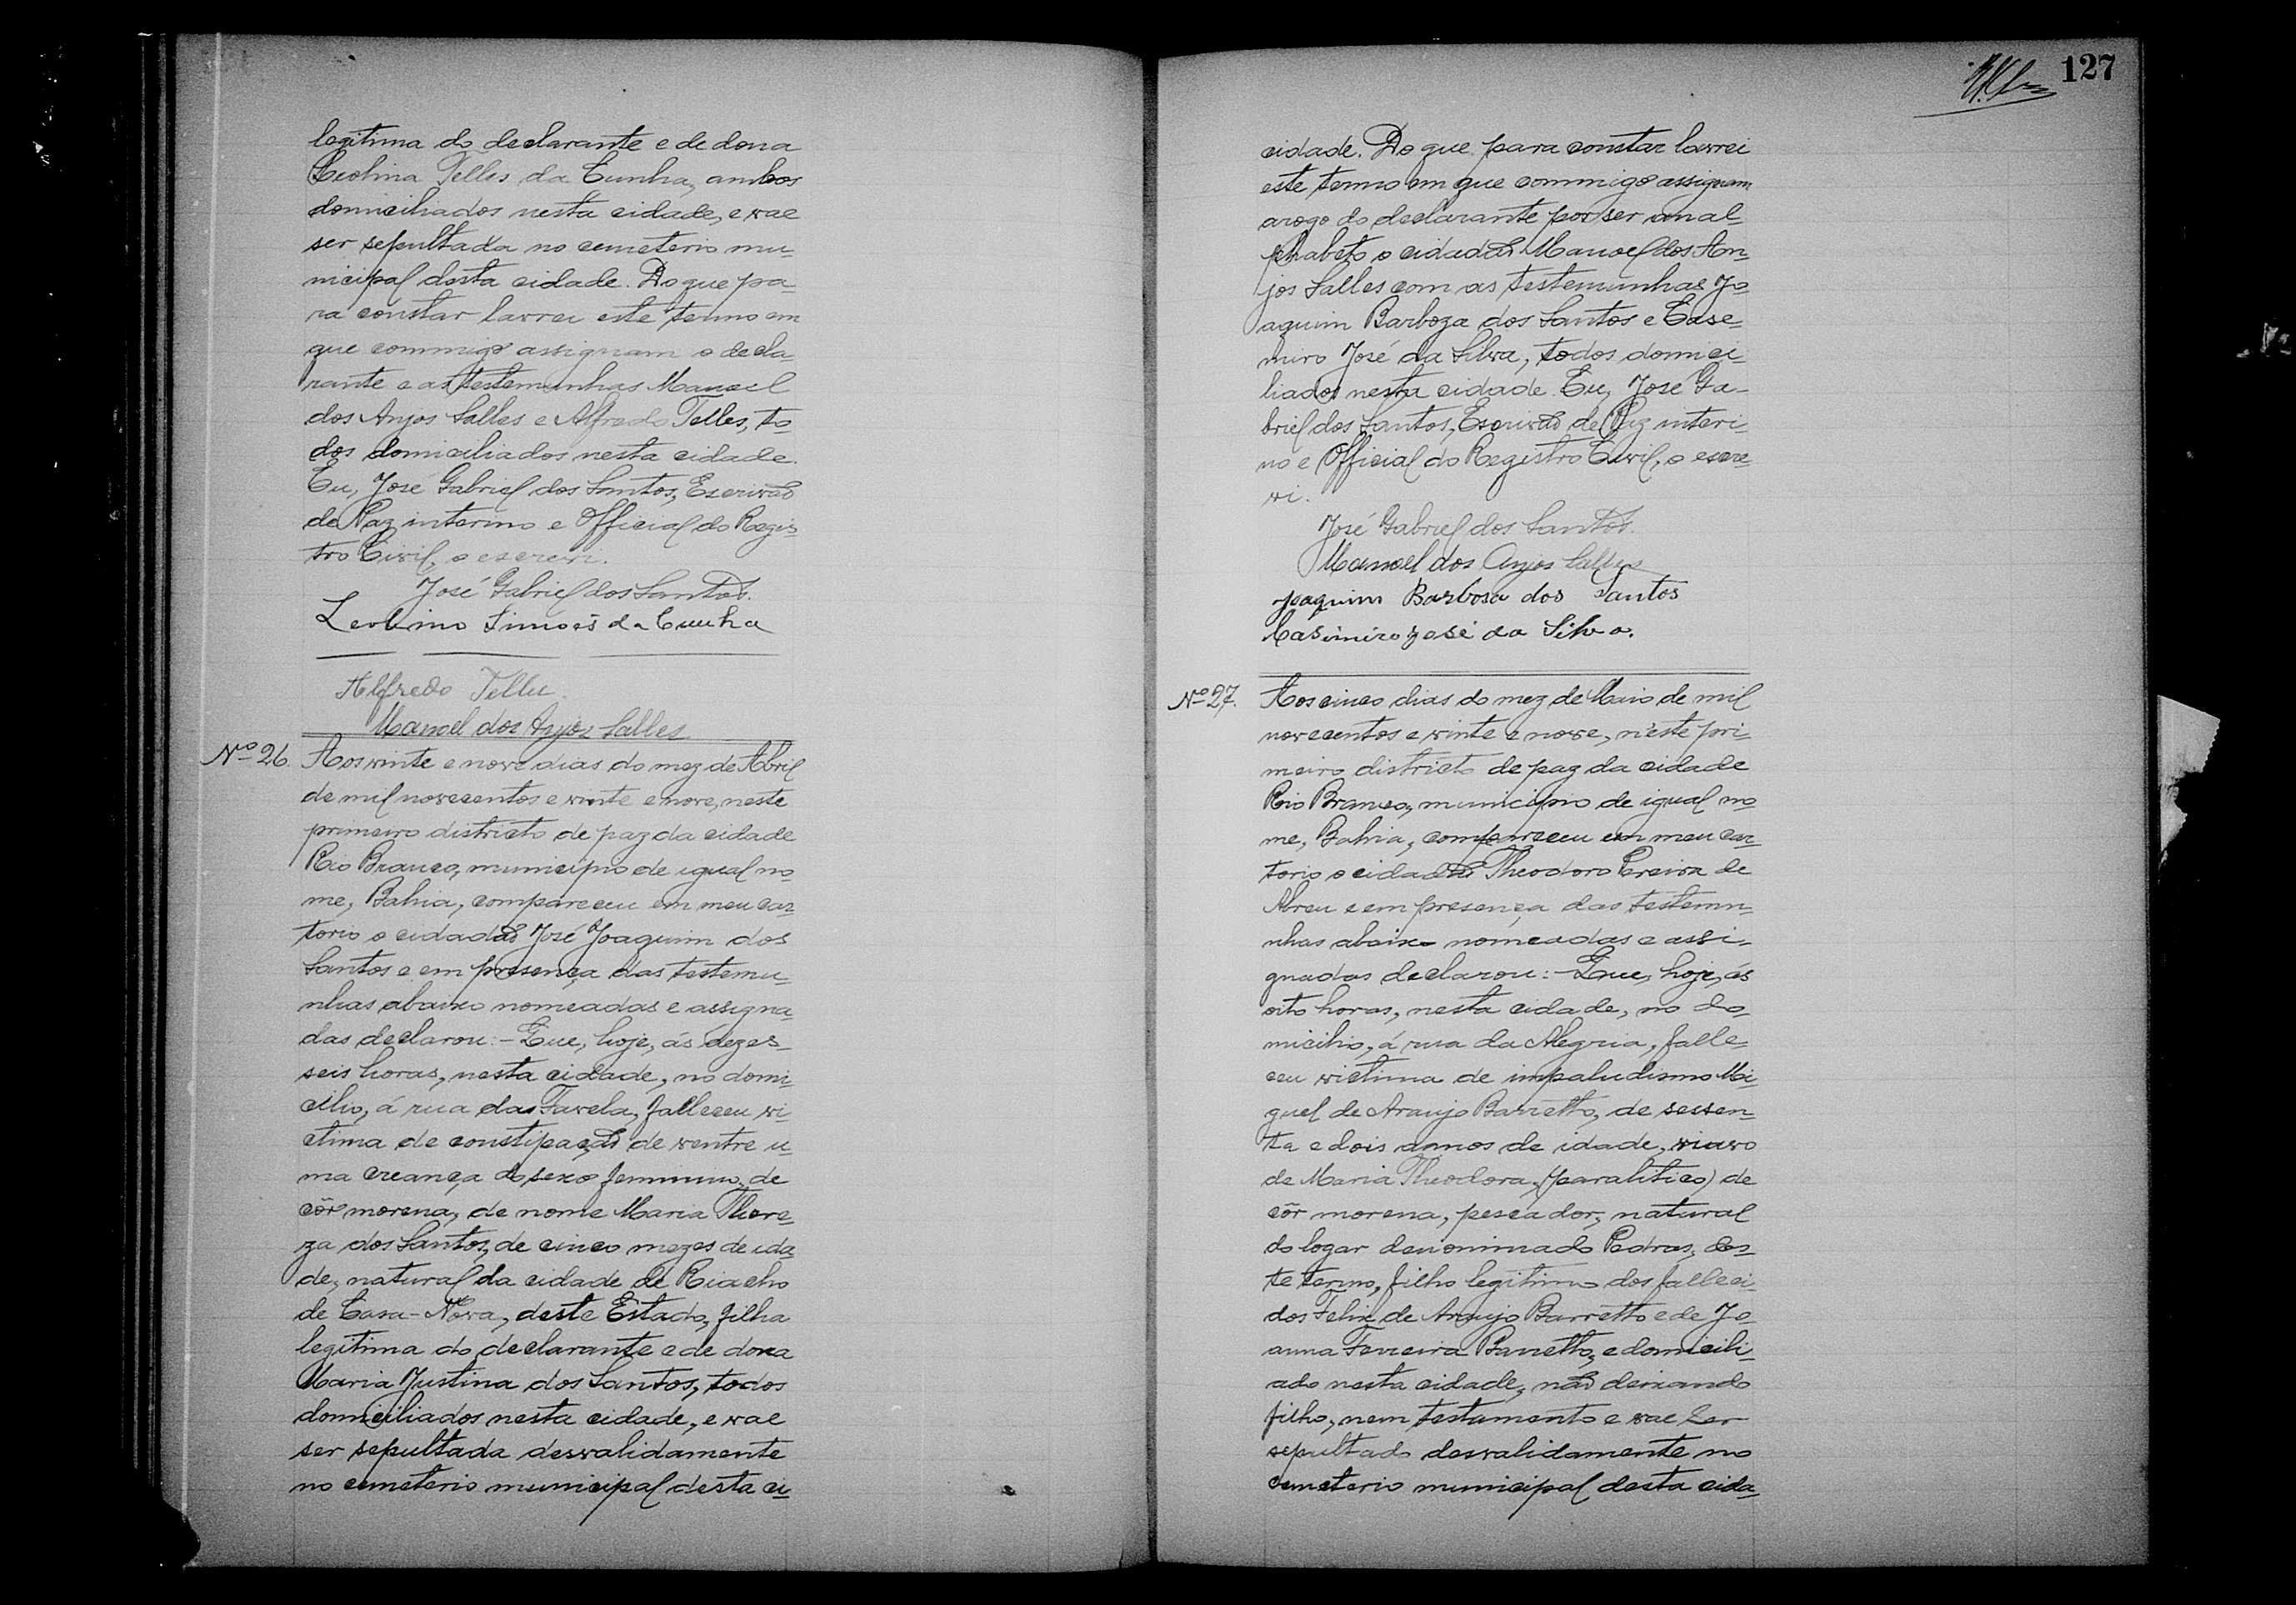 legitima do declarante e de dona
Leolina Telles da Cunha, ambos
domiciliados nesta cidade, e vae
ser sepultada no cemeterio mu-
nicipal desta cidade. Do que pa-
ra constar lavrei este termo em
que commigo assignam o decla-
rante e as testemunhas Manoel
dos Anjos Salles e Alfredo Telles, to-
dos domiciliados nesta cidade.
Eu, José Gabriel dos Santos, Escrivão
de Paz interino e Official do Regis-
tro Civil, o escrevi.
José Gabriel dos Santos.
Leolino Simoes da Cunha
Alfredo Telles
Manoel dos Anjos Salles
Nº 26. Aos vinte e nove dias do mez de Abril
de mil novecentos e vinte e nove, neste
primeiro districto de paz da cidade
Rio Branco, municipio de igual no-
me, Bahia, compareceu em meu car-
torio o cidadão José Joaquim dos
Santos e em presença das testemu-
nhas abaixo nomeadas e assigna-
das declarou:- Que, hoje, ás dezes-
seis horas, nesta cidade, no domi-
cilio, á rua das Favela, falleceu vi-
ctima de constipação de ventre u-
ma creança do sexo feminino, de
côr morena, de nome Maria There-
za dos Santos, de cinco mezes de ida-
de, natural da cidade de Riacho
de Casa-Nova, deste Estado, filha
legitima do declarante e de dona
Maria Justina dos Santos, todos
domiciliados nesta cidade, e vae
ser sepultada desvalidamente
no cemeterio municipal desta ci-
127
cidade. Do que para constar lavrei
este termo em que commigo assignam
arogo do declarante por ser anal-
phabeto o cidadão Manoel dos An-
jos Salles com as testemunhas Jo-
aquim Barboza dos Santos e Case-
miro José da Silva, todos domici-
liados nesta cidade. Eu, José Ga-
briel dos Santos, Escrivão de Paz interi-
no e Official do Registro Civil, o escre-
vi.
José Gabriel dos Santos.
Manoel dos Anjos Salles
Joaquim Barbosa dos Santos
Casimiro José da Silva.
Nº 27. Aos cinco dias do mez de Maio de mil
novecentos e vinte e nove, n'este pri-
meiro districto de paz da cidade
Rio Branco, municipio de igual no-
me, Bahia, compareceu em meu car-
torio o cidadão Theodoro Pereira de
Abreu e em presença das testemu-
nhas abaixo nomeadas e assi-
gnadas declarou:- Que, hoje, ás
oito horas, nesta cidade, no do-
micilio, á rua da Alegria, falle-
ceu victima de impaludismo Mi-
guel de Araujo Barretto, de sessen-
ta e dois annos de idade, viuvo
de Maria Theodora, (paralitico) de
côr morena, pescador, natural
do logar denominado Pedras, des-
te termo, filho legitimo dos falleci-
dos Felix de Araujo Barretto e de Jo-
anna Ferreira Barretto, e domicili-
ado nesta cidade, não deixando
filho, nem testamento e vae ser
sepultado desvalidamente no
cemeterio municipal desta cida-